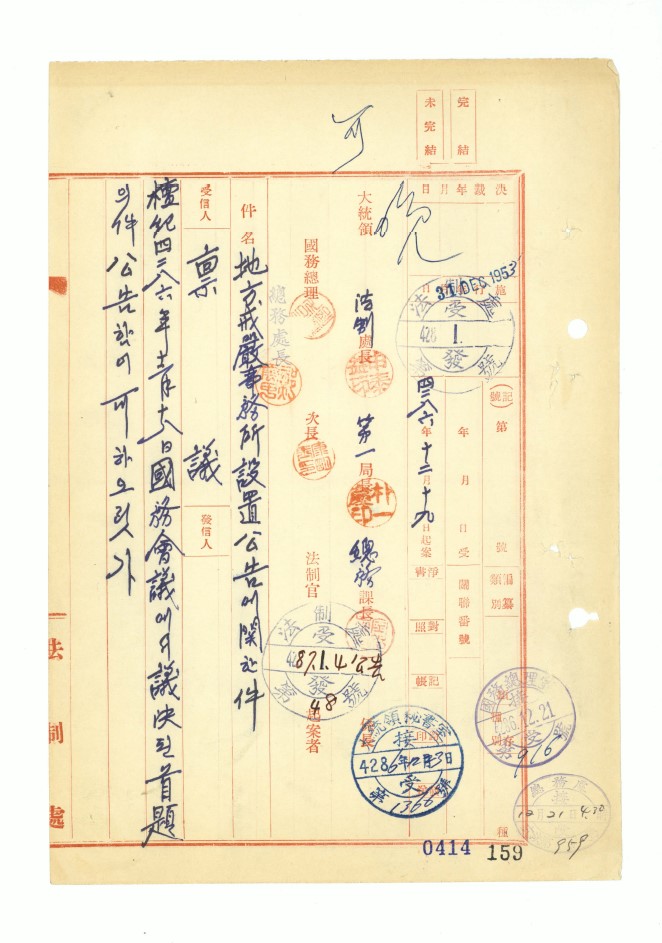 完結
未完結
可
決裁年月日
31 DEC 1953
法制處
受
428
1.
發
號
(記號)第
號
年
月
日受
關聯番號
編纂類別
種
四二八六年十二月十九日起案
淨書
對照
記帳
大統領
法制處長
第一局長
朴一慶印
總務課長
國務總理
總務處長
次長
法制官
起案者
法制處
受
4287.1.4
發
第48號
大統領秘書室
接
4286年12月23日
受
第1366號
國務總理室
4286.12.21
第916號
總務處
接
12月21日4.30
受
959
件名
地方戒嚴事務所設置公告에關한件
受信人
稟議
發信人
檀紀四二八六年十二月十八日國務會議에서議決된首題
의件公告함이可하오릿가
法制處
0414
159